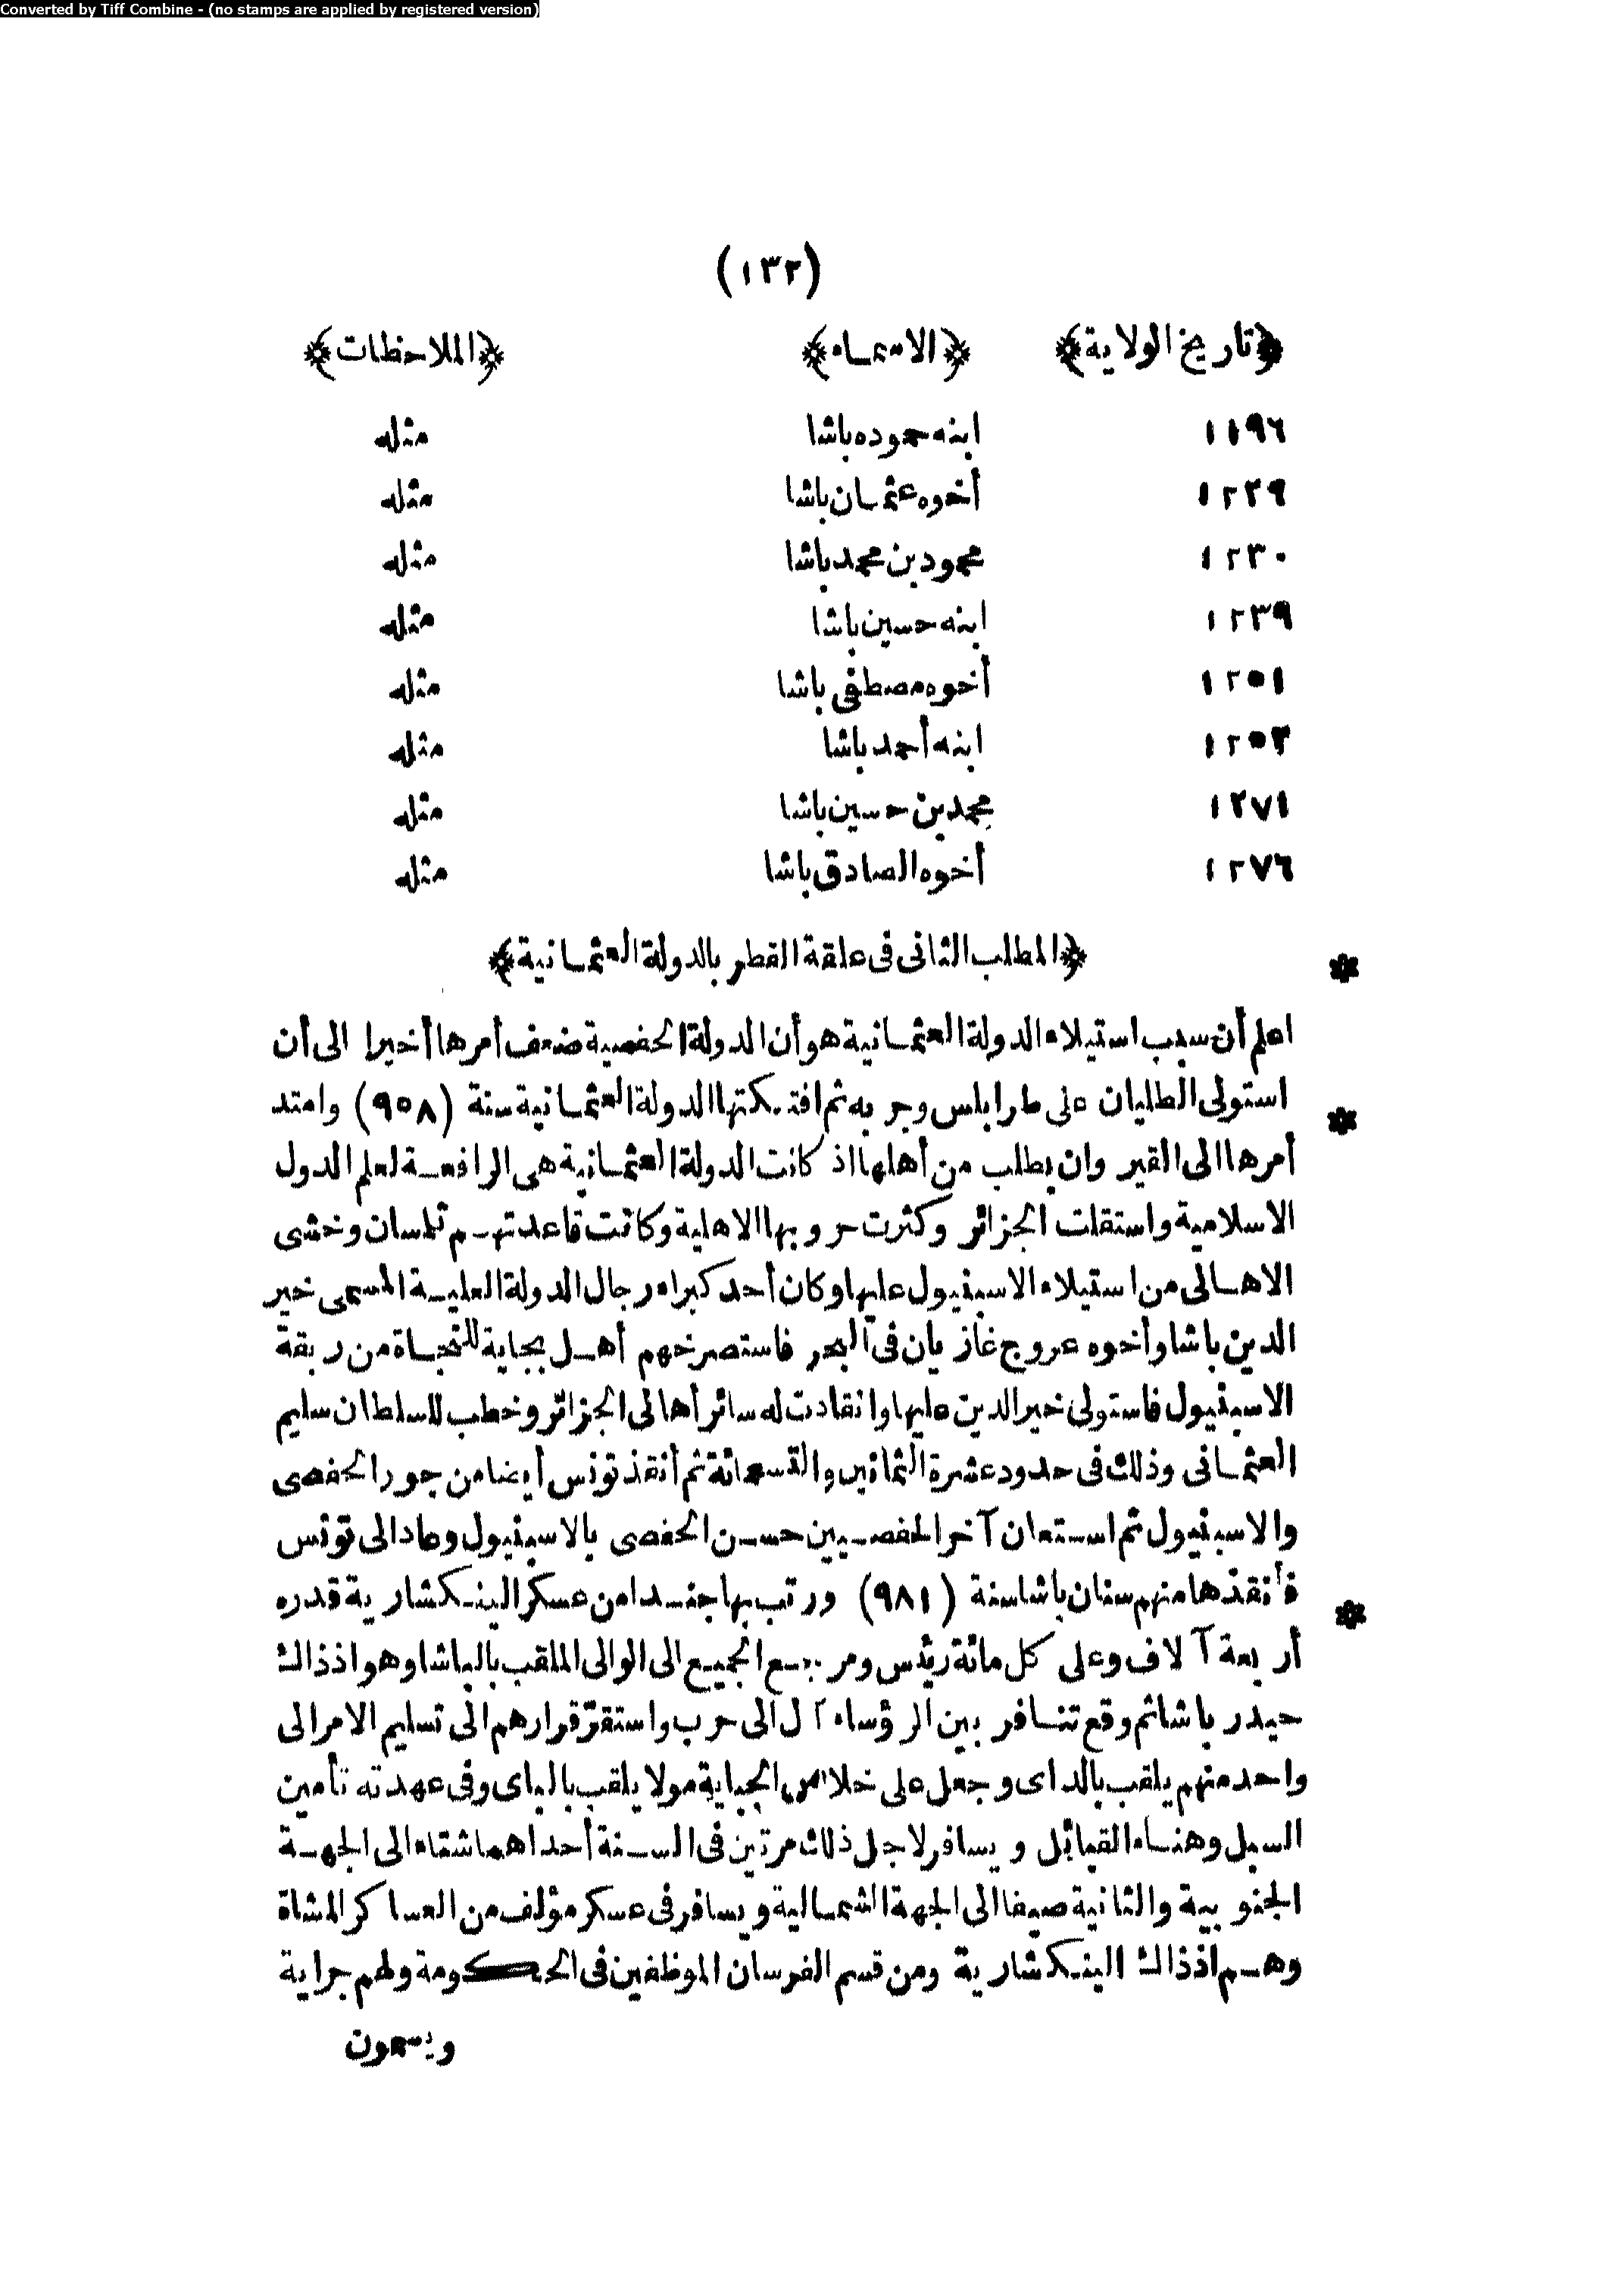 Converted by Tiff Combine - (no stamps are applied by registered version)
(١٣٢)
﴿تاريخ الولاية﴾ ﴿الاسماء﴾ ﴿الملاحظات﴾
١١٩٦ ابنه حموده باشا مثله
١٢٢٩ أخوه عثمان باشا مثله
١٢٣٠ محمود بن محمد باشا مثله
١٢٣٩ ابنه حسين باشا مثله
١٢٥١ أخوه مصطفى باشا مثله
١٢٥٣ ابنه أحمد باشا مثله
١٢٧١ محمد بن حسين باشا مثله
١٢٧٦ أخوه الصادق باشا مثله
* ﴿المطلب الثانى فى علقة القطر بالدولة العثمانية﴾
اعلم أن سبب استيلاء الدولة العثمانية هو أن الدولة الحفصية ضعف أمرها أخيرا الى أن
* استولى الطليان على طرابلس وجربه ثم افتكتها الدولة العثمانية سنة (٩٥٨) وامتد
أمرها الى القير وان بطلب من أهلها اذ كانت الدولة العثمانية هى الرافعة لعلم الدول
الاسلامية واستقلت الجزائر وكثرت حروبها الاهلية وكانت قاعدتهم تلمسان وخشى
الاهالى من استيلاء الاسبنيول عليها وكان أحد كبراء رجال الدولة العلية المسمى خير
الدين باشا وأخوه عروج غازيان فى البحر فاستصرخهم أهل بجاية للنجاة من ربقة
الاسبنيول فاستولى خير الدين عليها وانقادت له سائر أهالى الجزائر وخطب للسلطان سليم
العثمانى وذلك فى حدود عشرة الثمانين والتسعمائة ثم أنقذ تونس أيضا من جور الحفصى
والاسبنيول ثم استعان آخر الحفصيين حسن الحفصى بالاسبنيول وعاد الى تونس
* فأنقذها منهم سنان باشا سنة (٩٨١) ورتب بها جندا من عسكر الينكشارية قدره
أربعة آلاف وعلى كل مائة رئيس ومرجع الجميع الى الوالى الملقب بالباشا وهو اذ ذاك
حيدر باشا ثم وقع تنافر بين الرؤساء آل الى حرب واستقرّ قرارهم الى تسليم الامر الى
واحد منهم يلقب بالداى وجعل على خلاص الجباية مولا يلقب بالباى وفى عهدته تأمين
السبل وهناء القبائل ويسافر لاجل ذلك مرتين فى السنة أحداهما شتاء الى الجهة
الجنوبية والثانية صيفا الى الجهة الشمالية ويسافر فى عسكر مؤلف من العساكر المشاة
وهم اذ ذاك الينكشارية ومن قسم الفرسان الموظفين فى الحكومة ولهم جراية
ويسمون